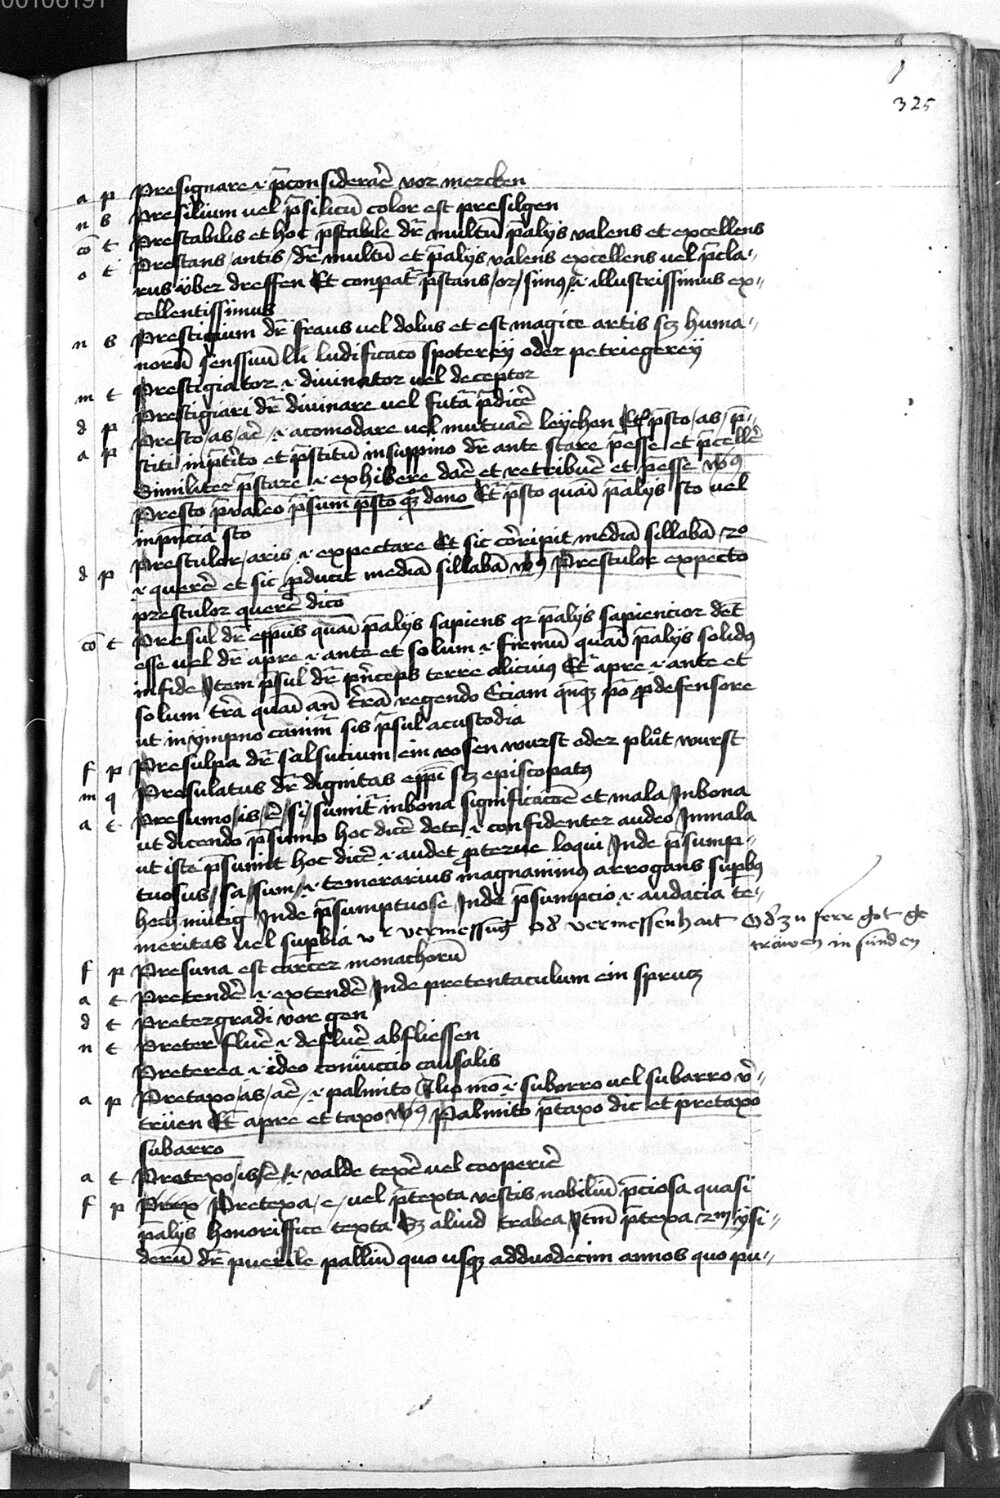 00108191
325
a p Presignare .i. p̄considerar̄e vor mercken
n s Presilium vel p̄silicū color est presilgen
cō t Prestabilis et hoc p̄stabile dr̄ multū p̄alijs valens et excellens
o t Prestans /antis/ dr̄ multū et p̄alijs valens excellens vel p̄cla⸗
rus über dreffen Et conpat̄ p̄stans/or/simꝰ .i. illustrissimus ex⸗
cellentissimus
n s Prestigium dr̄ fraus vel dolus et est magice artis scꝫ huma⸗
norū senssuū ludificacō spoterey oder petriegerey
m t Prestigiator .i. divinator vel deceptor
d p Prestigiari dr̄ divinare vel futa p̄dicē
a p Presto/as/ar̄e/ .i. acomodare vel mutuar̄e leychen Et p̄sto/as/p̄⸗
stiti inp̄tīto et p̄stitū insuppino dr̄ ante stare p̄esse et p̄cellē
Similiter p̄stare .i. exhibere dar̄e et retribuē et p̄esse vꝰꝰ
Presto p̄valeo p̄sum p̄sto qꝫ dono Et p̄sto quāi p̄alijs sto vel
inp̄ncia sto
d p Prestulor/aris .i. expectare Et sic cōripit mediā sillabā 2o
.i. querē et sic p̄ducit mediā sillabā vꝰꝰ Prestulor expecto
prestulor querē dico
cō t Presul dr̄ epp̄us quāi p̄alijs sapiens qꝛ p̄alijs sapiencior det̄
esse vel dr̄ apre .i. ante et solum .i. firmū quāi p̄alijs solidꝰ
infide Jtem p̄sul dr̄ p̄nceps terre alicuiꝰ Et apre .i. ante et
solum tr̄a quāi an̄ tr̄ā regendo Eciam qn̄qꝫ pō p̄defensore
ut in ympno canim̄ sis p̄sul acustodia
f p Presulpa dr̄ salsucium ein rosen wurst oder plůt wurst
m q Presulatus dr̄ dignitas epp̄i scꝫ episcopatꝰ
a t Presumo/is/ē/sij/ sumit̄ inbona significac̄ōe et mala Jnbona
ut dicendo p̄sumo hoc dicē .i. confidenter audeo Jnmala
ut iste p̄sumit hoc dicē .i. audet p̄terve loqui Jnde p̄sump⸗
tuosus/sa/sum/ .i. temerarius magnanimꝰ arrogans supbꝰ
hochmütig Jnde p̄sumptuose Jnde p̄sumpcio .i. audacia te⸗
meritas vel supbia vermessūg od̄ vermessenhait Od̄ zu ferr got ge
träwen in sünden
f p Presuna est carcer monachorū
a t Pretendē .i. extendē Jnde pretentaculum ein sprucꝫ
d t Pretergradi vor gen
n t Preter fluē .i. defluē abfliessen
Preterea .i. ideo coniūccio causalis
a p Pretaxo/as/ar̄e/ .i. palmito Alio mō .i. suborro vel subarro v̄⸗
trüen Et apre et taxo vꝰꝰ Palmito p̄taxo dic et pretaxo
subarro
a t Pretexo/is/ē/ .i. valde texē vel cooperiē
f p Pretexa/e/ vel p̄texta vestis nobiliū p̄ciosa quasi
p̄alijs honoriffice texta Eꝫ aliud trabea Jtm̄ p̄texa 2m ysi⸗
derū dr̄ puerile palliū quo usqꝫ adduodecim annos quo pu⸗